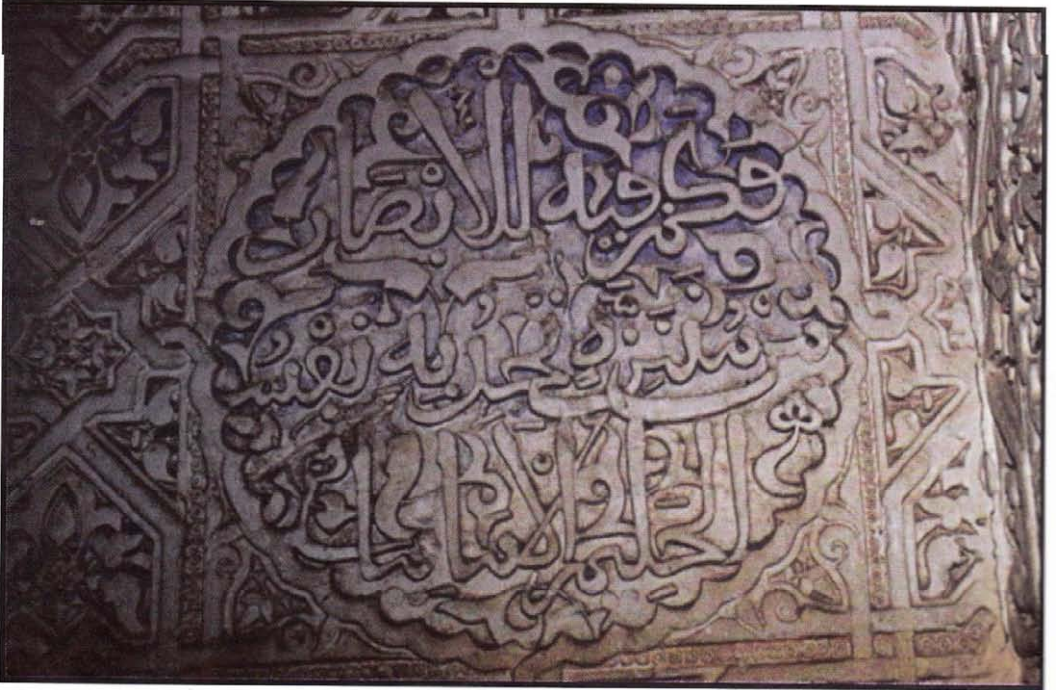 فكم فيه للابصار
من متنزه تجد به نفس
الحليم الامانيا